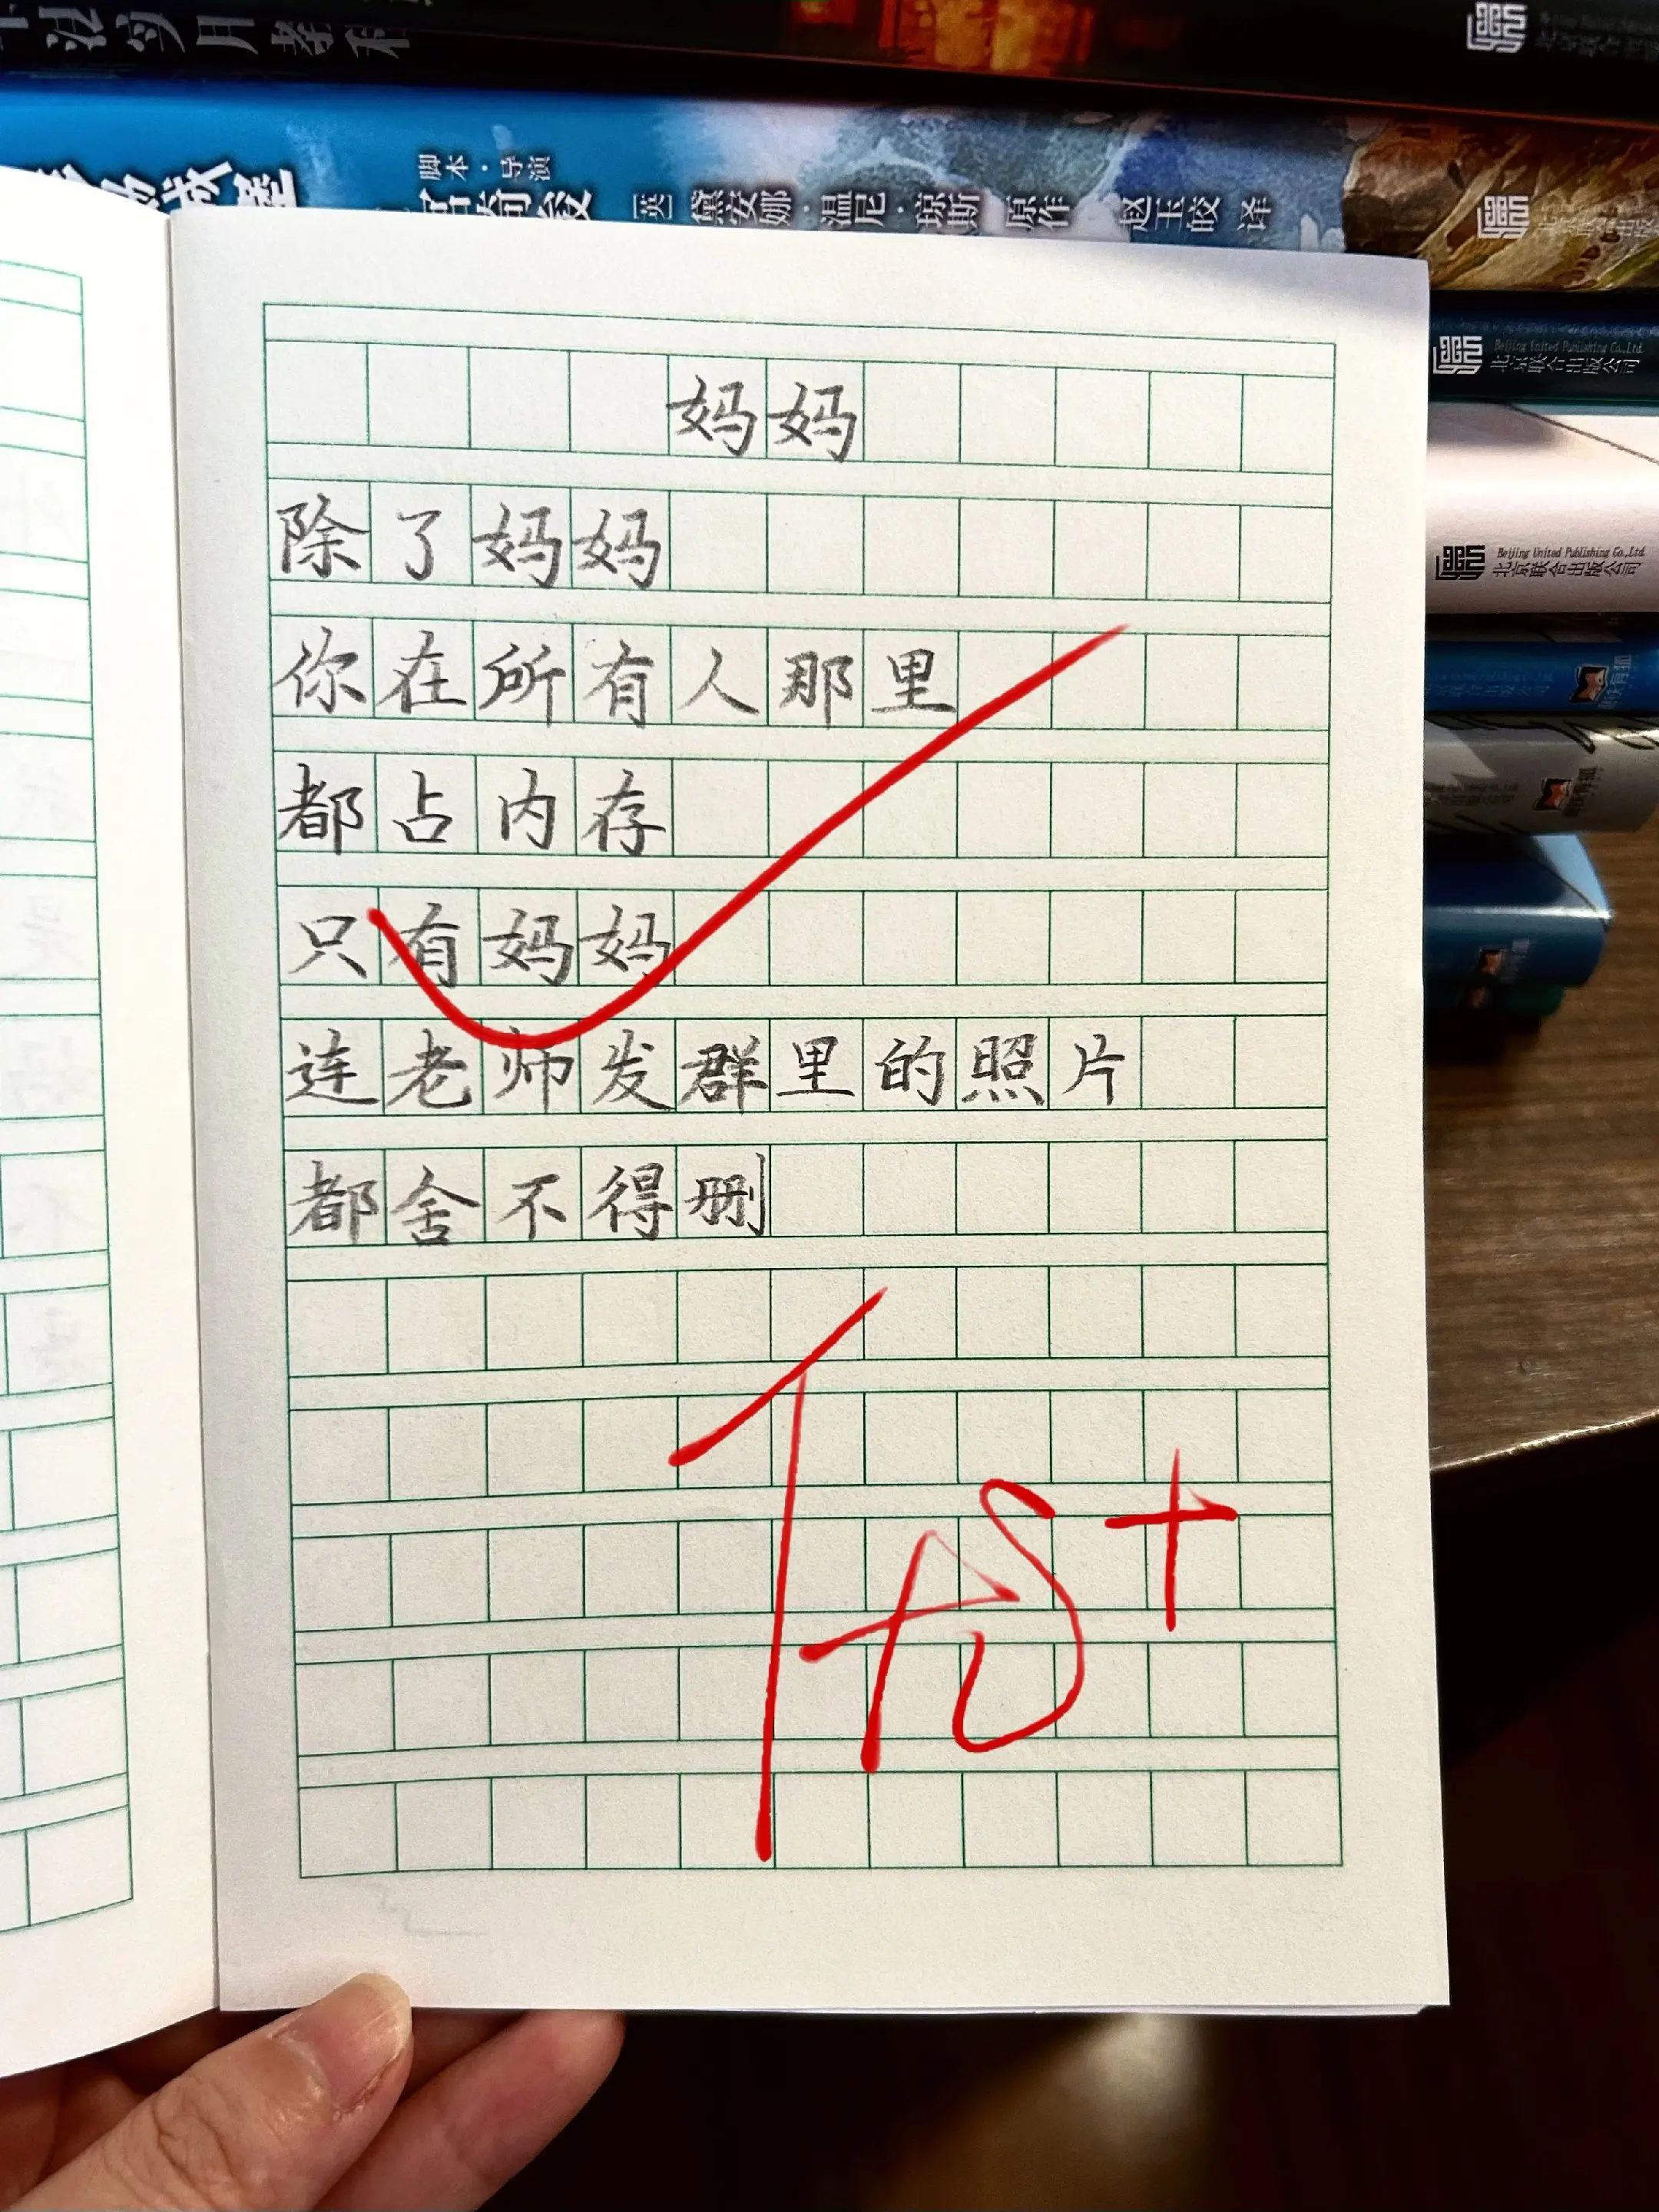 脚本·导演
[英] 黛安娜·温尼·琼斯 原作 赵玉皎 译
妈妈
除了妈妈
你在所有人那里
都占内存
只有妈妈
连老师发群里的照片
都舍不得删
Beijing United Publishing Co.,Ltd.
北京联合出版公司
Beijing United Publishing Co.,Ltd.
北京联合出版公司